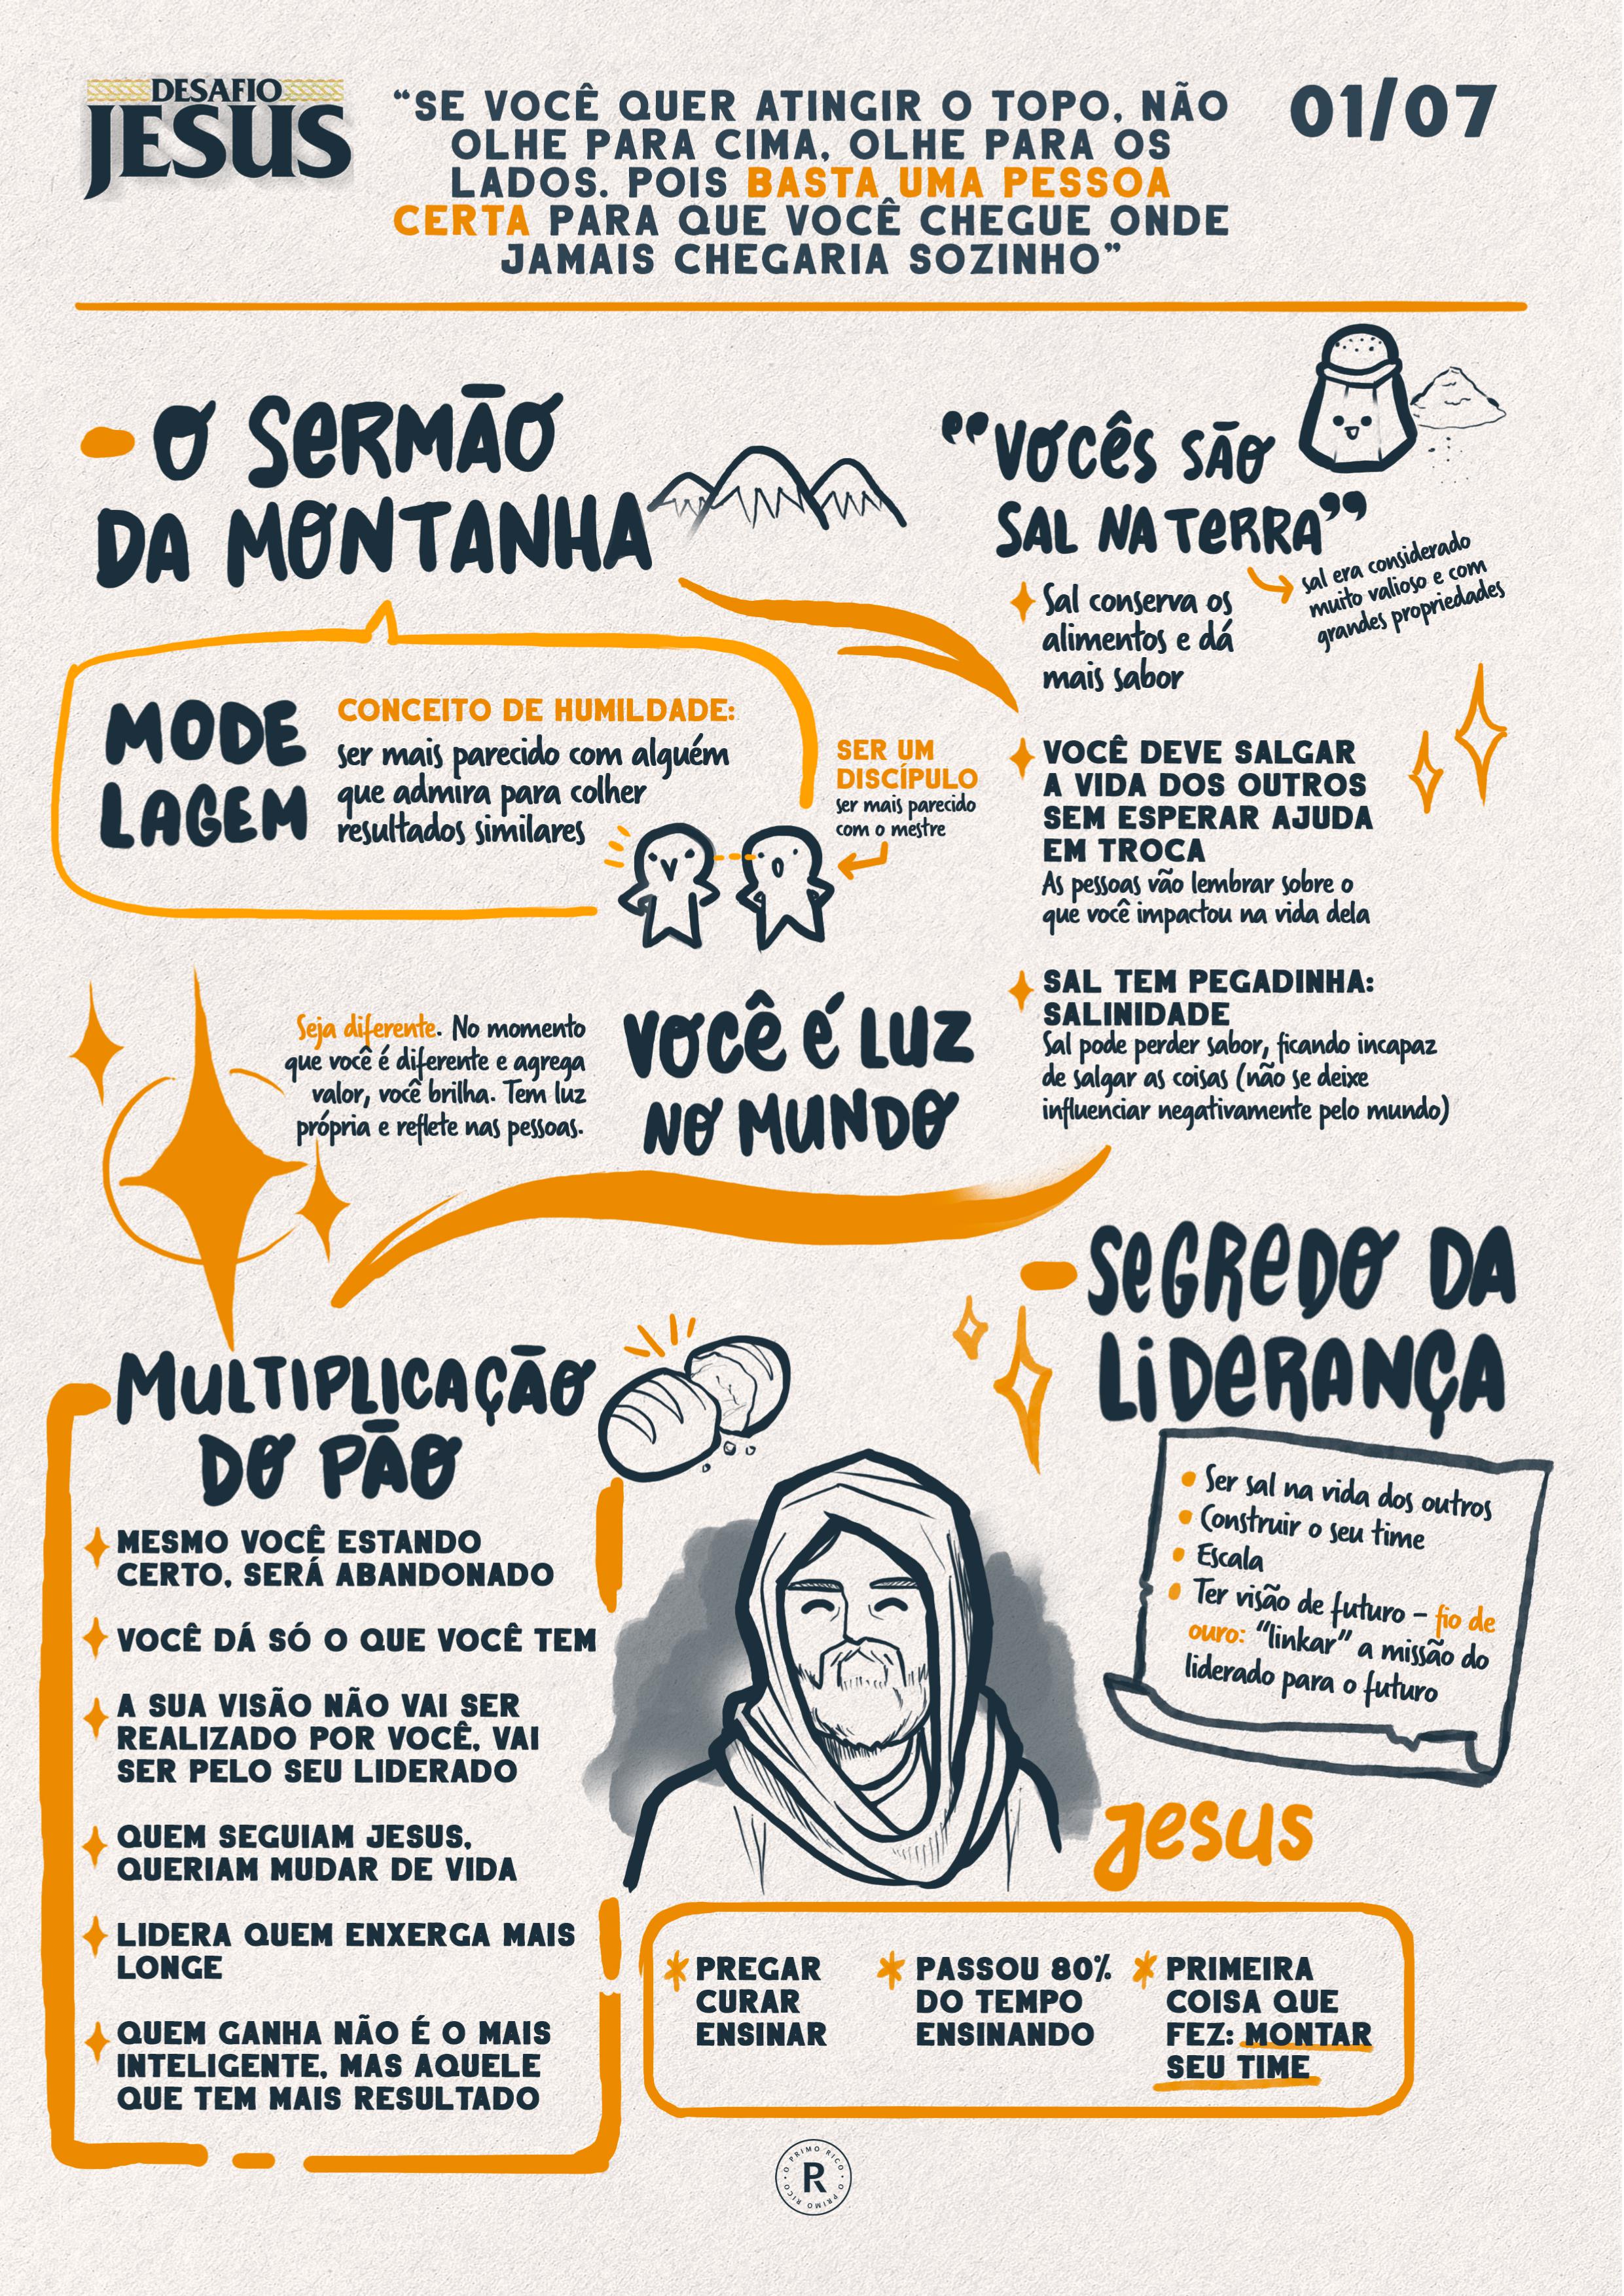 DESAFIO
JESUS
“SE VOCÊ QUER ATINGIR O TOPO, NÃO
OLHE PARA CIMA, OLHE PARA OS
LADOS. POIS BASTA UMA PESSOA
CERTA PARA QUE VOCÊ CHEGUE ONDE
JAMAIS CHEGARIA SOZINHO”
01/07
O SERMÃO
DA MONTANHA
MODE
LAGEM
CONCEITO DE HUMILDADE:
ser mais parecido com alguém
que admira para colher
resultados similares
SER UM
DISCÍPULO
ser mais parecido
com o mestre
“VOCÊS SÃO
SAL NA TERRA”
sal era considerado
muito valioso e com
grandes propriedades
Sal conserva os
alimentos e dá
mais sabor
VOCÊ DEVE SALGAR
A VIDA DOS OUTROS
SEM ESPERAR AJUDA
EM TROCA
As pessoas vão lembrar sobre o
que você impactou na vida dela
SAL TEM PEGADINHA:
SALINIDADE
Sal pode perder sabor, ficando incapaz
de salgar as coisas (não se deixe
influenciar negativamente pelo mundo)
VOCÊ É LUZ
NO MUNDO
Seja diferente. No momento
que você é diferente e agrega
valor, você brilha. Tem luz
própria e reflete nas pessoas.
MULTIPLICAÇÃO
DO PÃO
MESMO VOCÊ ESTANDO
CERTO, SERÁ ABANDONADO
VOCÊ DÁ SÓ O QUE VOCÊ TEM
A SUA VISÃO NÃO VAI SER
REALIZADO POR VOCÊ, VAI
SER PELO SEU LIDERADO
QUEM SEGUIAM JESUS,
QUERIAM MUDAR DE VIDA
LIDERA QUEM ENXERGA MAIS
LONGE
QUEM GANHA NÃO É O MAIS
INTELIGENTE, MAS AQUELE
QUE TEM MAIS RESULTADO
SEGREDO DA
LIDERANÇA
Ser sal na vida dos outros
Construir o seu time
Escala
Ter visão de futuro – fio de
ouro: “linkar” a missão do
liderado para o futuro
Jesus
PREGAR
CURAR
ENSINAR
PASSOU 80%
DO TEMPO
ENSINANDO
PRIMEIRA
COISA QUE
FEZ: MONTAR
SEU TIME
O PRIMO RICO • O PRIMO RICO •
R